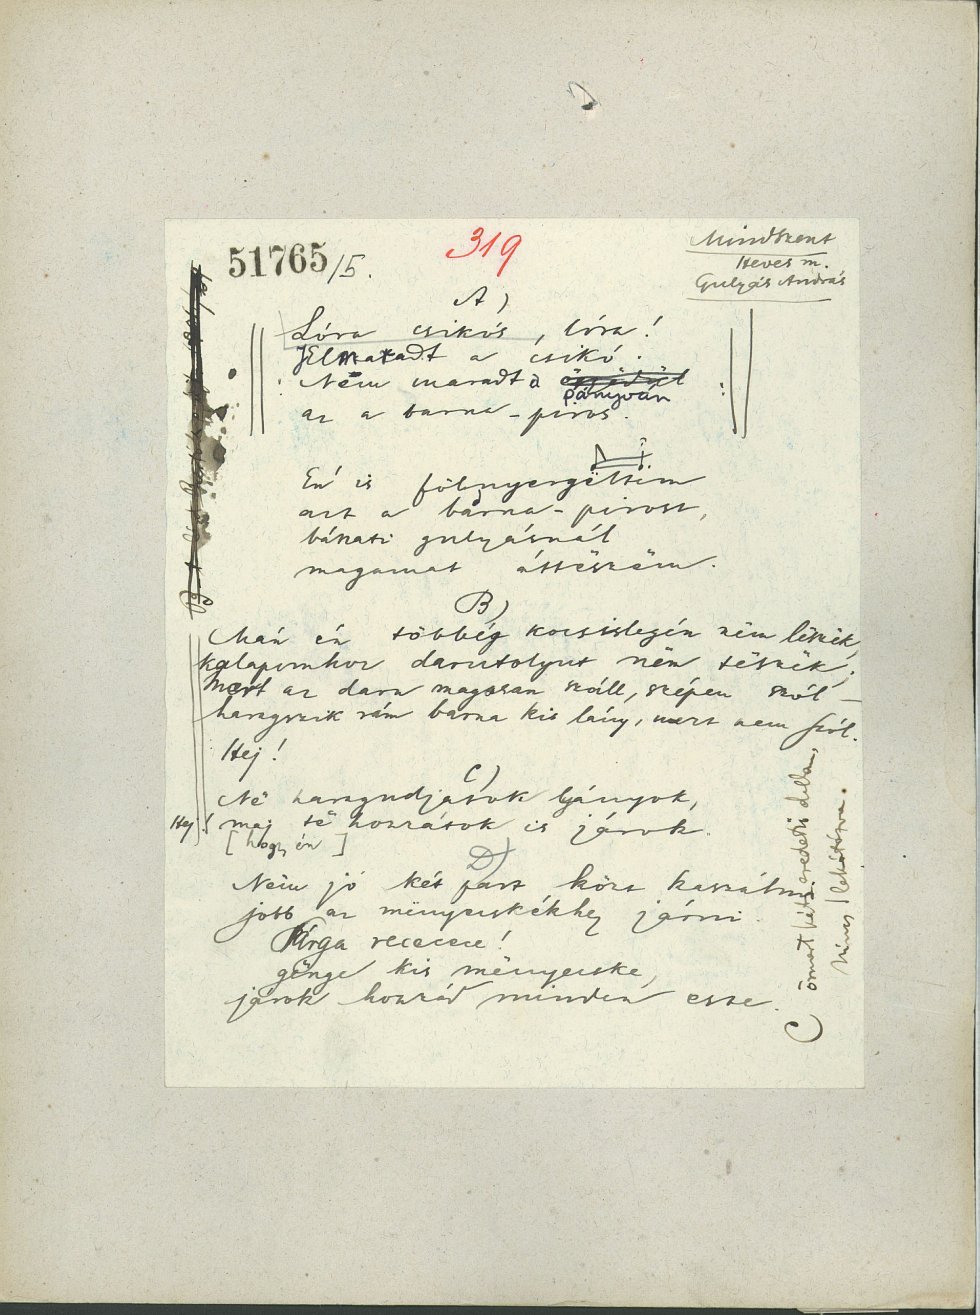 51765/5.
319
Mindszent
Heves m.
Gulyás András
A)
Lóra csikós, lóra!
Elmaradt a csikó.
Nem maradt a pányván
az a barna-piros.
Én is fölnyergeltem
azt a barna-pirost,
bákati gulyásnál
magamat áttëszëm.
B)
Mán én többég kocsislegén nëm lëszëk,
kalapomhoz darutolyut nëm tëszëk;
Mert az daru magosan száll, szépen szól –
haragszik rám barna kis lány, mert nem szól.
Hej!
C)
Në haragudjatok lyányok,
Hej! maj të hozzátok is járok.
[hogy én]
D)
Nëm jó két part közt kaszálni
jobb az mënyecskékhë járni.
Sárga rececece!
gënge kis mënyecske,
járok hozzád minden este.
C eredeti
nincs